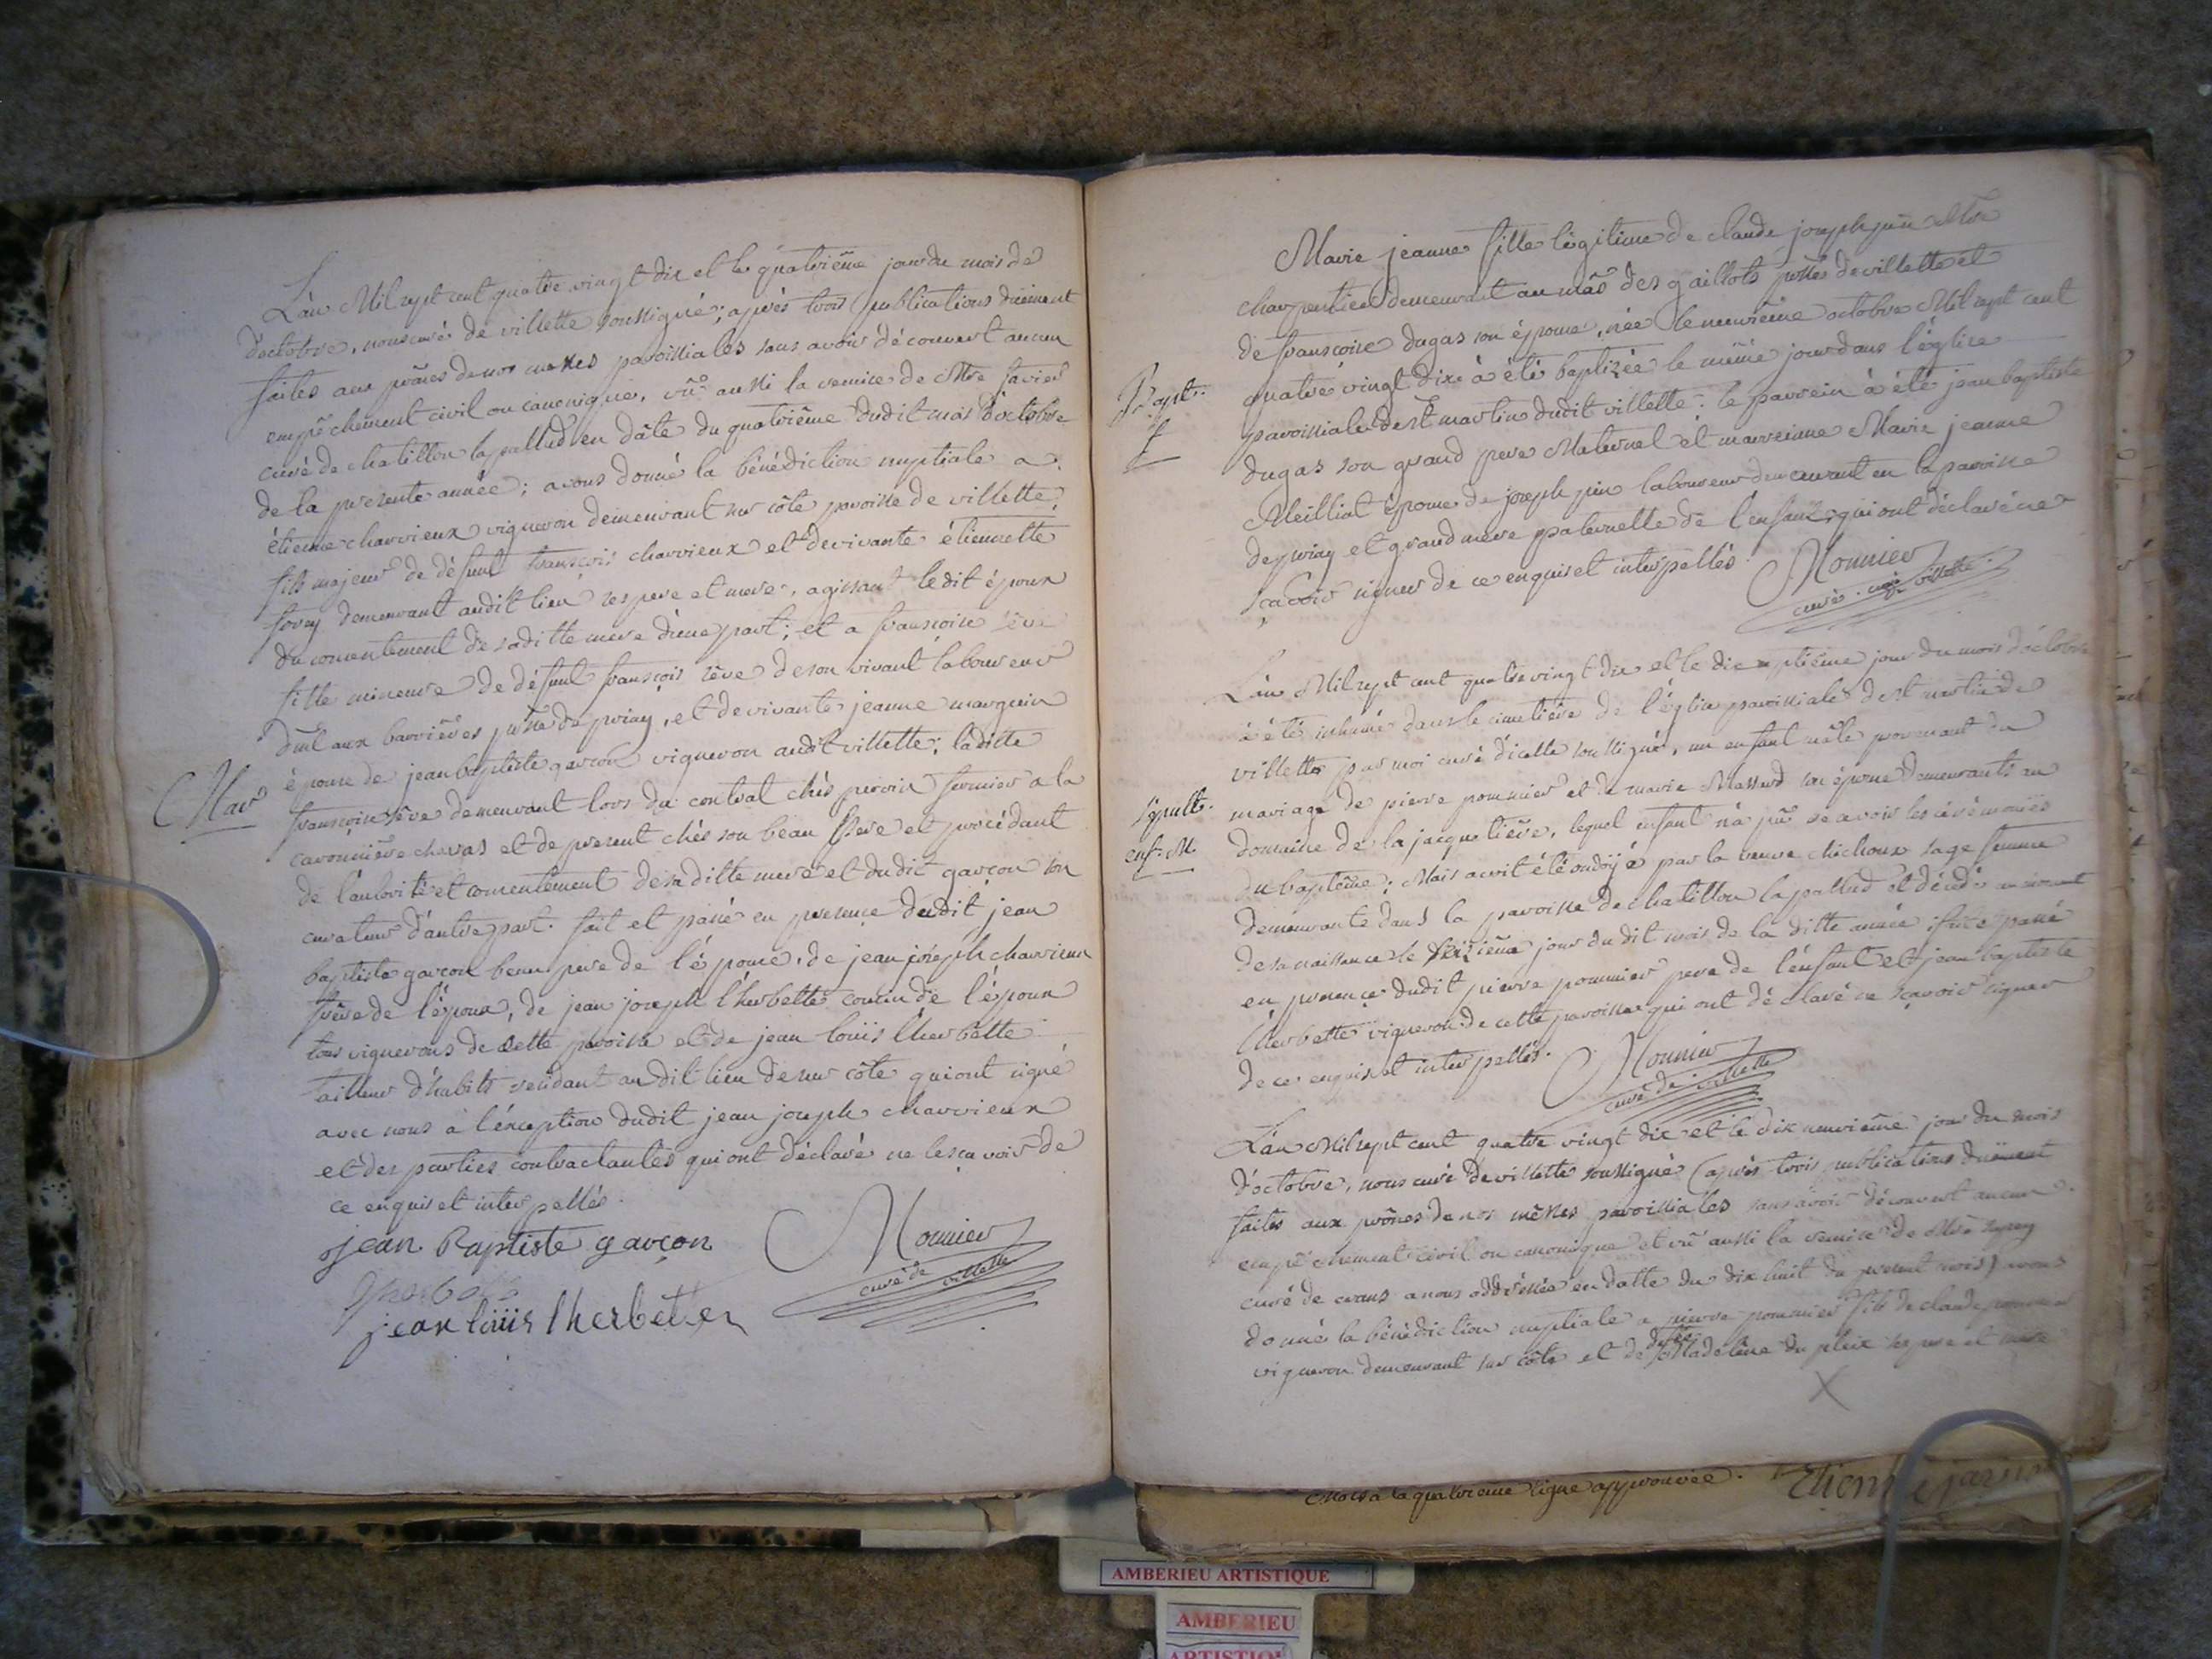 L'an Mil sept cent quatre vingt dix et le quatriême jour du mois de
d'octobre, nous curé de villette soussigné; après trois publications düement
faites aux prônes de nos messes paroissiales sans avoir découvert aucun
empêchement civil ou canonique, vû aussi la remise de Mre favier
curé de chatillon lapallud en dâte du quatriême dudit mois d'octobre
de la presente année; avons donné la bénédiction nuptiale a
étienne charvieux vigneron demeurant sur côte paroisse de villette,
fils majeur de défunt françois charvieux et de vivante étiennette
forey demeurant audit lieu ses pere et mere, agissant ledit époux
du consentement de sa ditte mere d'une part; et a françoise sève
fille mineure de défunt françois sève de son vivant laboureur
aux barrières psse de priay, et de vivante jeanne marguin
épouse de jean baptiste garçon vigneron audit villette; laditte
françoise sève demeurant lors du contrat chés perrin fermier a la
caronnière et de present chés son beau frere et procédant
de l'autorité et consentement de sa ditte mere et dudit garçon son
curateur d'autre part. fait et passé en presence dudit jean
baptiste garçon beau pere de l'épouse, de jean joseph charvieux
frère de l'époux, de jean joseph l'herbette cousin de l'époux
tous vignerons de cette paroisse et de jean louis l'herbette
tailleur d'habits residant au dit lieu de sur côte qui ont signé
avec nous à l'éxception dudit jean joseph charvieux
et des parties contractantes qui ont déclaré ne le sçavoir de
ce enquis et interpellés.
Mar
jean Baptiste garçon
Monnier
curé de villette
jean loüis lherbette
Marie jeanne fille légitime de claude joseph pin Mtre
charpentier demeurant au mâs des gaillots psse de villette et
de françoise dugas son épouse, née le neuvième octobre Mil sept cent
quatre vingt dix à été baptizée le même jour dans l'église
paroissiale de st martin dudit villette; le parrein à été jean baptiste
dugas son grand pere Maternel et marreinne Marie jeanne
Meilliat épouse de joseph pin laboureur demeurant en la paroisse
de priay et grand mere paternelle de l'enfant, qui ont déclaré ne
sçavoir signer de ce enquis et interpellés.
Bapt.
f
Monnier
curé villette
L'an Mil sept cent quatre vingt dix et le dix septiême jour du mois d'octobre
à été inhumé dans le cimetière de l'église paroissiale de st martin de
villette par moi curé d'icelle soussigné, un enfant mâle provenant du
mariage de pierre pommier et de marie Massard son épouse demeurants au
domaine de la jacquetière, lequel enfant n'à pû recevoir les cérémonies
du baptême; Mais avoit été ondoyé par la veuve Michoux sage femme
demeurante dans la paroisse de chatillon lapallud et décédé au moment
de sa naissance le seizième jour du dit mois de la ditte année: fait et passé
en presence dudit pierre pommier pere de l'enfant et jean baptiste
l'herbette vigneron de cette paroisse qui ont déclaré ne sçavoir signer
de ce enquis et interpellés.
Sépult.
enf. M.
Monnier
curé de villette
L'an Mil sept cent quatre vingt dix et le dix neuviême jour du mois
d'octobre, nous curé de villette soussigné (après trois publications düement
faites aux prônes de nos messes paroissiales sans avoir découvert aucun
empêchement civil ou canonique et vû aussi la remise de Mre
curé de crans a nous addréssée en datte du dix huit du present mois) avons
donné la bénédiction nuptiale a pierre pommier fils de claude pommier
vigneron demeurant sur côte et de Madelène du plex ses pere et mere
X
Mots à la quatrieme ligne approuvée.
AMBERIEU ARTISTIQUE
AMBERIEU
ARTISTIQUE